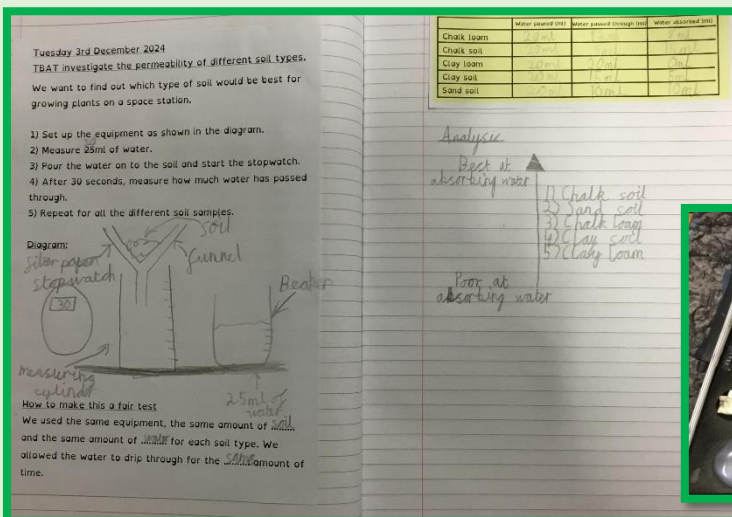 Tuesday 3rd December 2024
TBAT investigate the permeability of different soil types.
We want to find out which type of soil would be best for
growing plants on a space station.
1) Set up the equipment as shown in the diagram.
2) Measure 25ml of water.
3) Pour the water on to the soil and start the stopwatch.
4) After 30 seconds, measure how much water has passed
through.
5) Repeat for all the different soil samples.
Diagram:
soil
filter paper
funnel
stopwatch
30
Beaker
measuring
cylinder
25ml of
water
How to make this a fair test
We used the same equipment, the same amount of soil
and the same amount of water for each soil type. We
allowed the water to drip through for the same amount of
time.
Water poured (ml) Water passed through (ml) Water absorbed (ml)
Chalk loam 20ml 8ml
Chalk soil 20ml 15ml
Clay loam 20ml 20ml 0ml
Clay soil 20ml 15ml 5ml
Sand soil 20ml 10ml 10ml
Analysis
Best at
absorbing water
1) Chalk soil
2) Sand soil
3) Chalk loam
4) Clay soil
5) Clay loam
Poor at
absorbing water